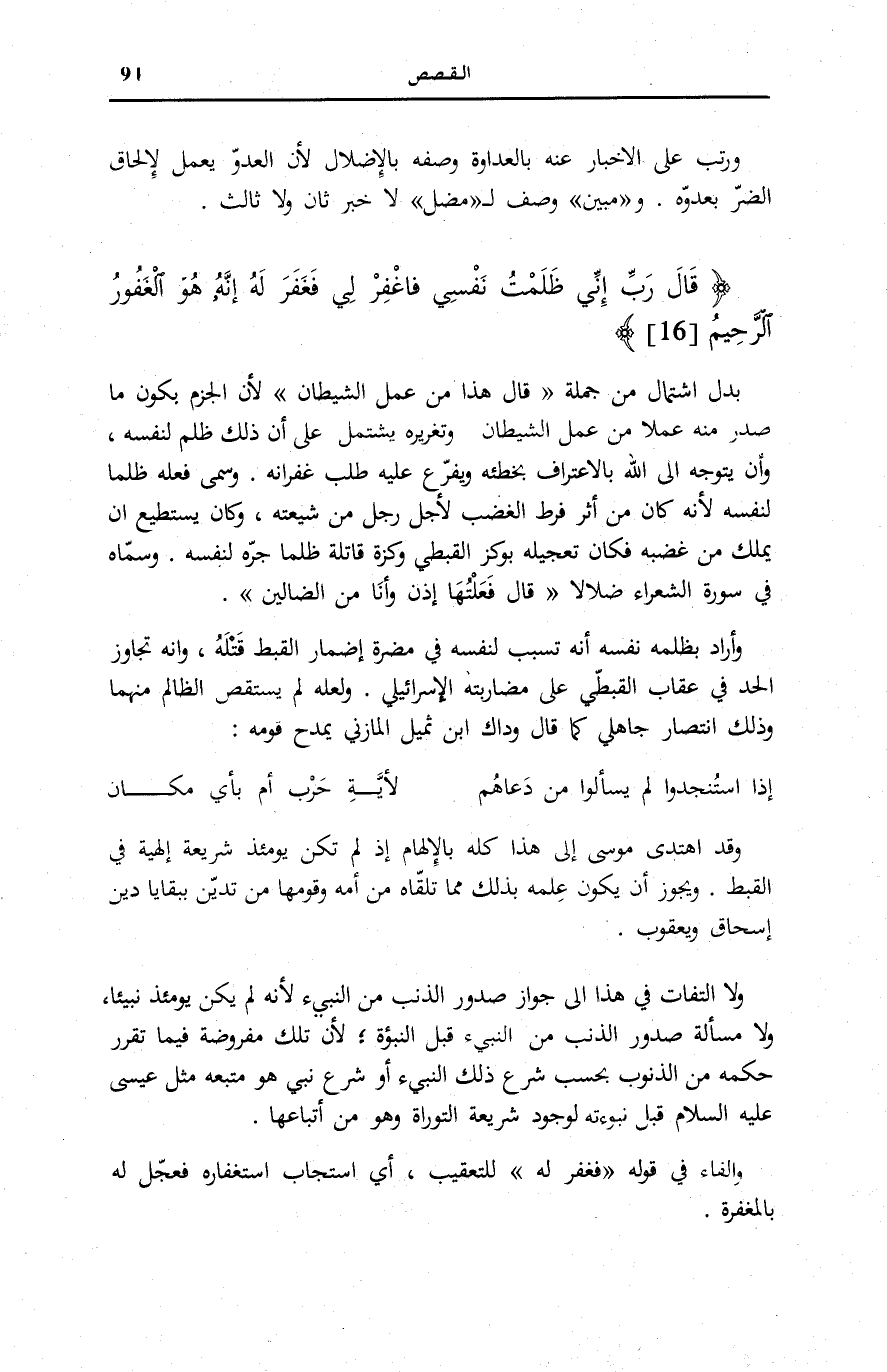 القصص 91
ورتب على الاخبار عنه بالعداوة وصفه بالإضلال لأن العدوّ يعمل لإلحاق
الضرّ بعدوّه . و«مبين» وصف لـ«مضل» لا خبر ثان ولا ثالث .
﴿ قَالَ رَبِّ إِنِّي ظَلَمْتُ نَفْسِي فاغْفِرْ لِي فَغَفَرَ لَهُ إنَّهُ هُوَ ٱلْغَفُورُ
ٱلرَّحِيمُ [16] ﴾
بدل اشتمال من جملة « قال هذا من عمل الشيطان » لأن الجزم بكون ما
صدر منه عملا من عمل الشيطان وتغريره يشتمل على أن ذلك ظلم لنفسه ،
وأن يتوجه الى الله بالاعتراف بخطئه ويفرّع عليه طلب غفرانه . وسمى فعله ظلما
لنفسه لأنه كان من أثر فرط الغضب لأجل رجل من شيعته ، وكان يستطيع ان
يملك من غضبه فكان تعجيله بوكز القبطي وكزة قاتلة ظلما جرّه لنفسه . وسمّاه
في سورة الشعراء ضلالا « قال فَعَلْتُهَا إذن وأنَا من الضالين » .
وأراد بظلمه نفسه أنه تسبب لنفسه في مضرة إضمار القبط قَتْلَهُ ، وانه تجاوز
الحد في عقاب القبطّي على مضاربته الإسرائيلي . ولعله لم يستقص الظالم منهما
وذلك انتصار جاهلي كما قال وداك ابن ثميل المازني يمدح قومه :
إذا استُنجدوا لم يسألوا من دَعاهُم لأيَّــةِ حَرْب أم بأي مكــــان
وقد اهتدى موسى إلى هذا كله بالإلهام إذ لم تكن يومئذ شريعة إلهية في
القبط . ويجوز أن يكون عِلمه بذلك مما تلقّاه من أمه وقومها من تديّن ببقايا دين
إسحاق ويعقوب .
ولا التفات في هذا الى جواز صدور الذنب من النبيء لأنه لم يكن يومئذ نبيئا،
ولا مسألة صدور الذنب من النبيء قبل النبؤة ؛ لأن تلك مفروضة فيما تقرر
حكمه من الذنوب بحسب شرع ذلك النبيء أو شرع نبي هو متبعه مثل عيسى
عليه السلام قبل نبوءته لوجود شريعة التوراة وهو من أتباعها .
والفاء في قوله «فغفر له » للتعقيب ، أي استجاب استغفاره فعجّل له
بالمغفرة .